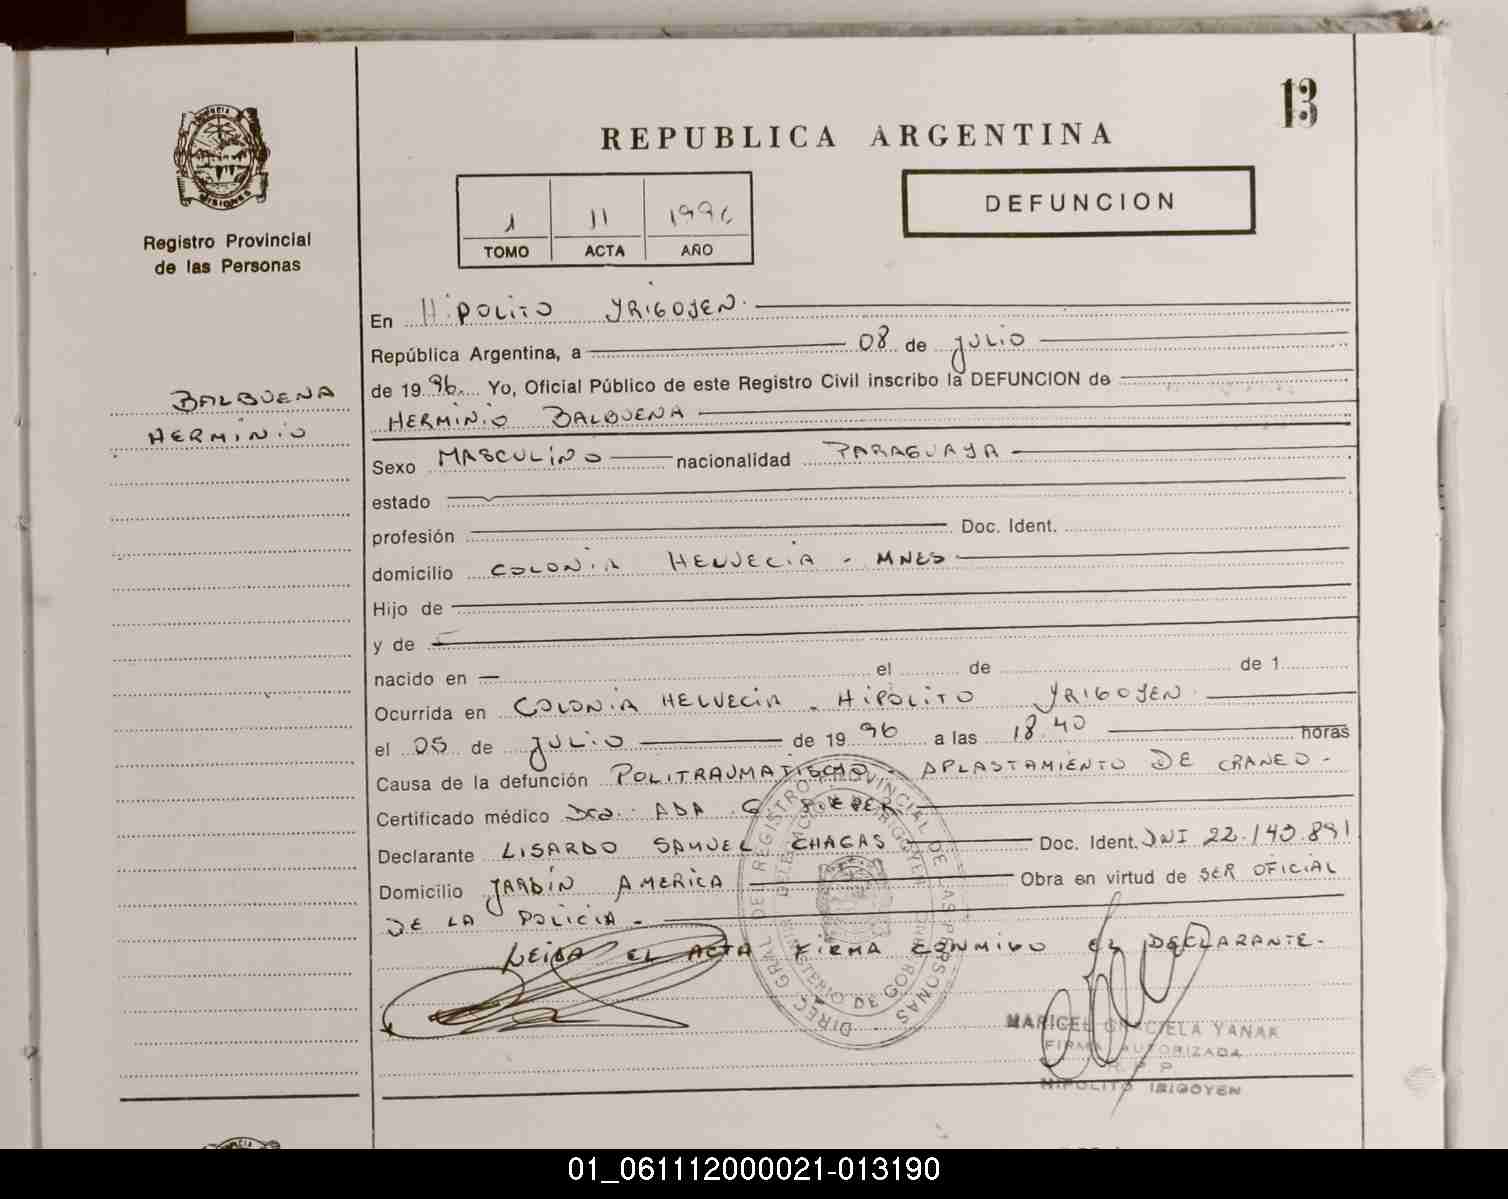 13
REPUBLICA ARGENTINA
MISIONES
Registro Provincial
de las Personas
1 11 1996
TOMO ACTA AÑO
DEFUNCION
BALBUENA
HERMINIO
En HIPOLITO YRIGOYEN.
República Argentina, a 08 de JULIO
de 1996. Yo, Oficial Público de este Registro Civil inscribo la DEFUNCION de
HERMINIO BALBUENA
Sexo MASCULINO nacionalidad PARAGUAYA
estado
profesión Doc. Ident.
domicilio COLONIA HELVECIA - MNES
Hijo de
y de
nacido en — el de de 1
Ocurrida en COLONIA HELVECIA - HIPOLITO YRIGOYEN
el 05 de JULIO de 1996 a las 18.40 horas
Causa de la defunción POLITRAUMATISMO - APLASTAMIENTO DE CRANEO -
Certificado médico Dra. ADA G
Declarante LISARDO SAMUEL CHAGAS Doc. Ident. DNI 22.143.891
Domicilio JARDIN AMERICA Obra en virtud de SER OFICIAL
DE LA POLICIA -
LEIDA EL ACTA FIRMA CONMIGO EL DECLARANTE -
DIREC. GRAL. DEL REGISTRO PROVINCIAL DE LAS PERSONAS
MINISTERIO DE GOBIERNO
MARICEL GRACIELA YANAK
FIRMA AUTORIZADA
R. P. P.
HIPOLITO IRIGOYEN
01_061112000021-013190